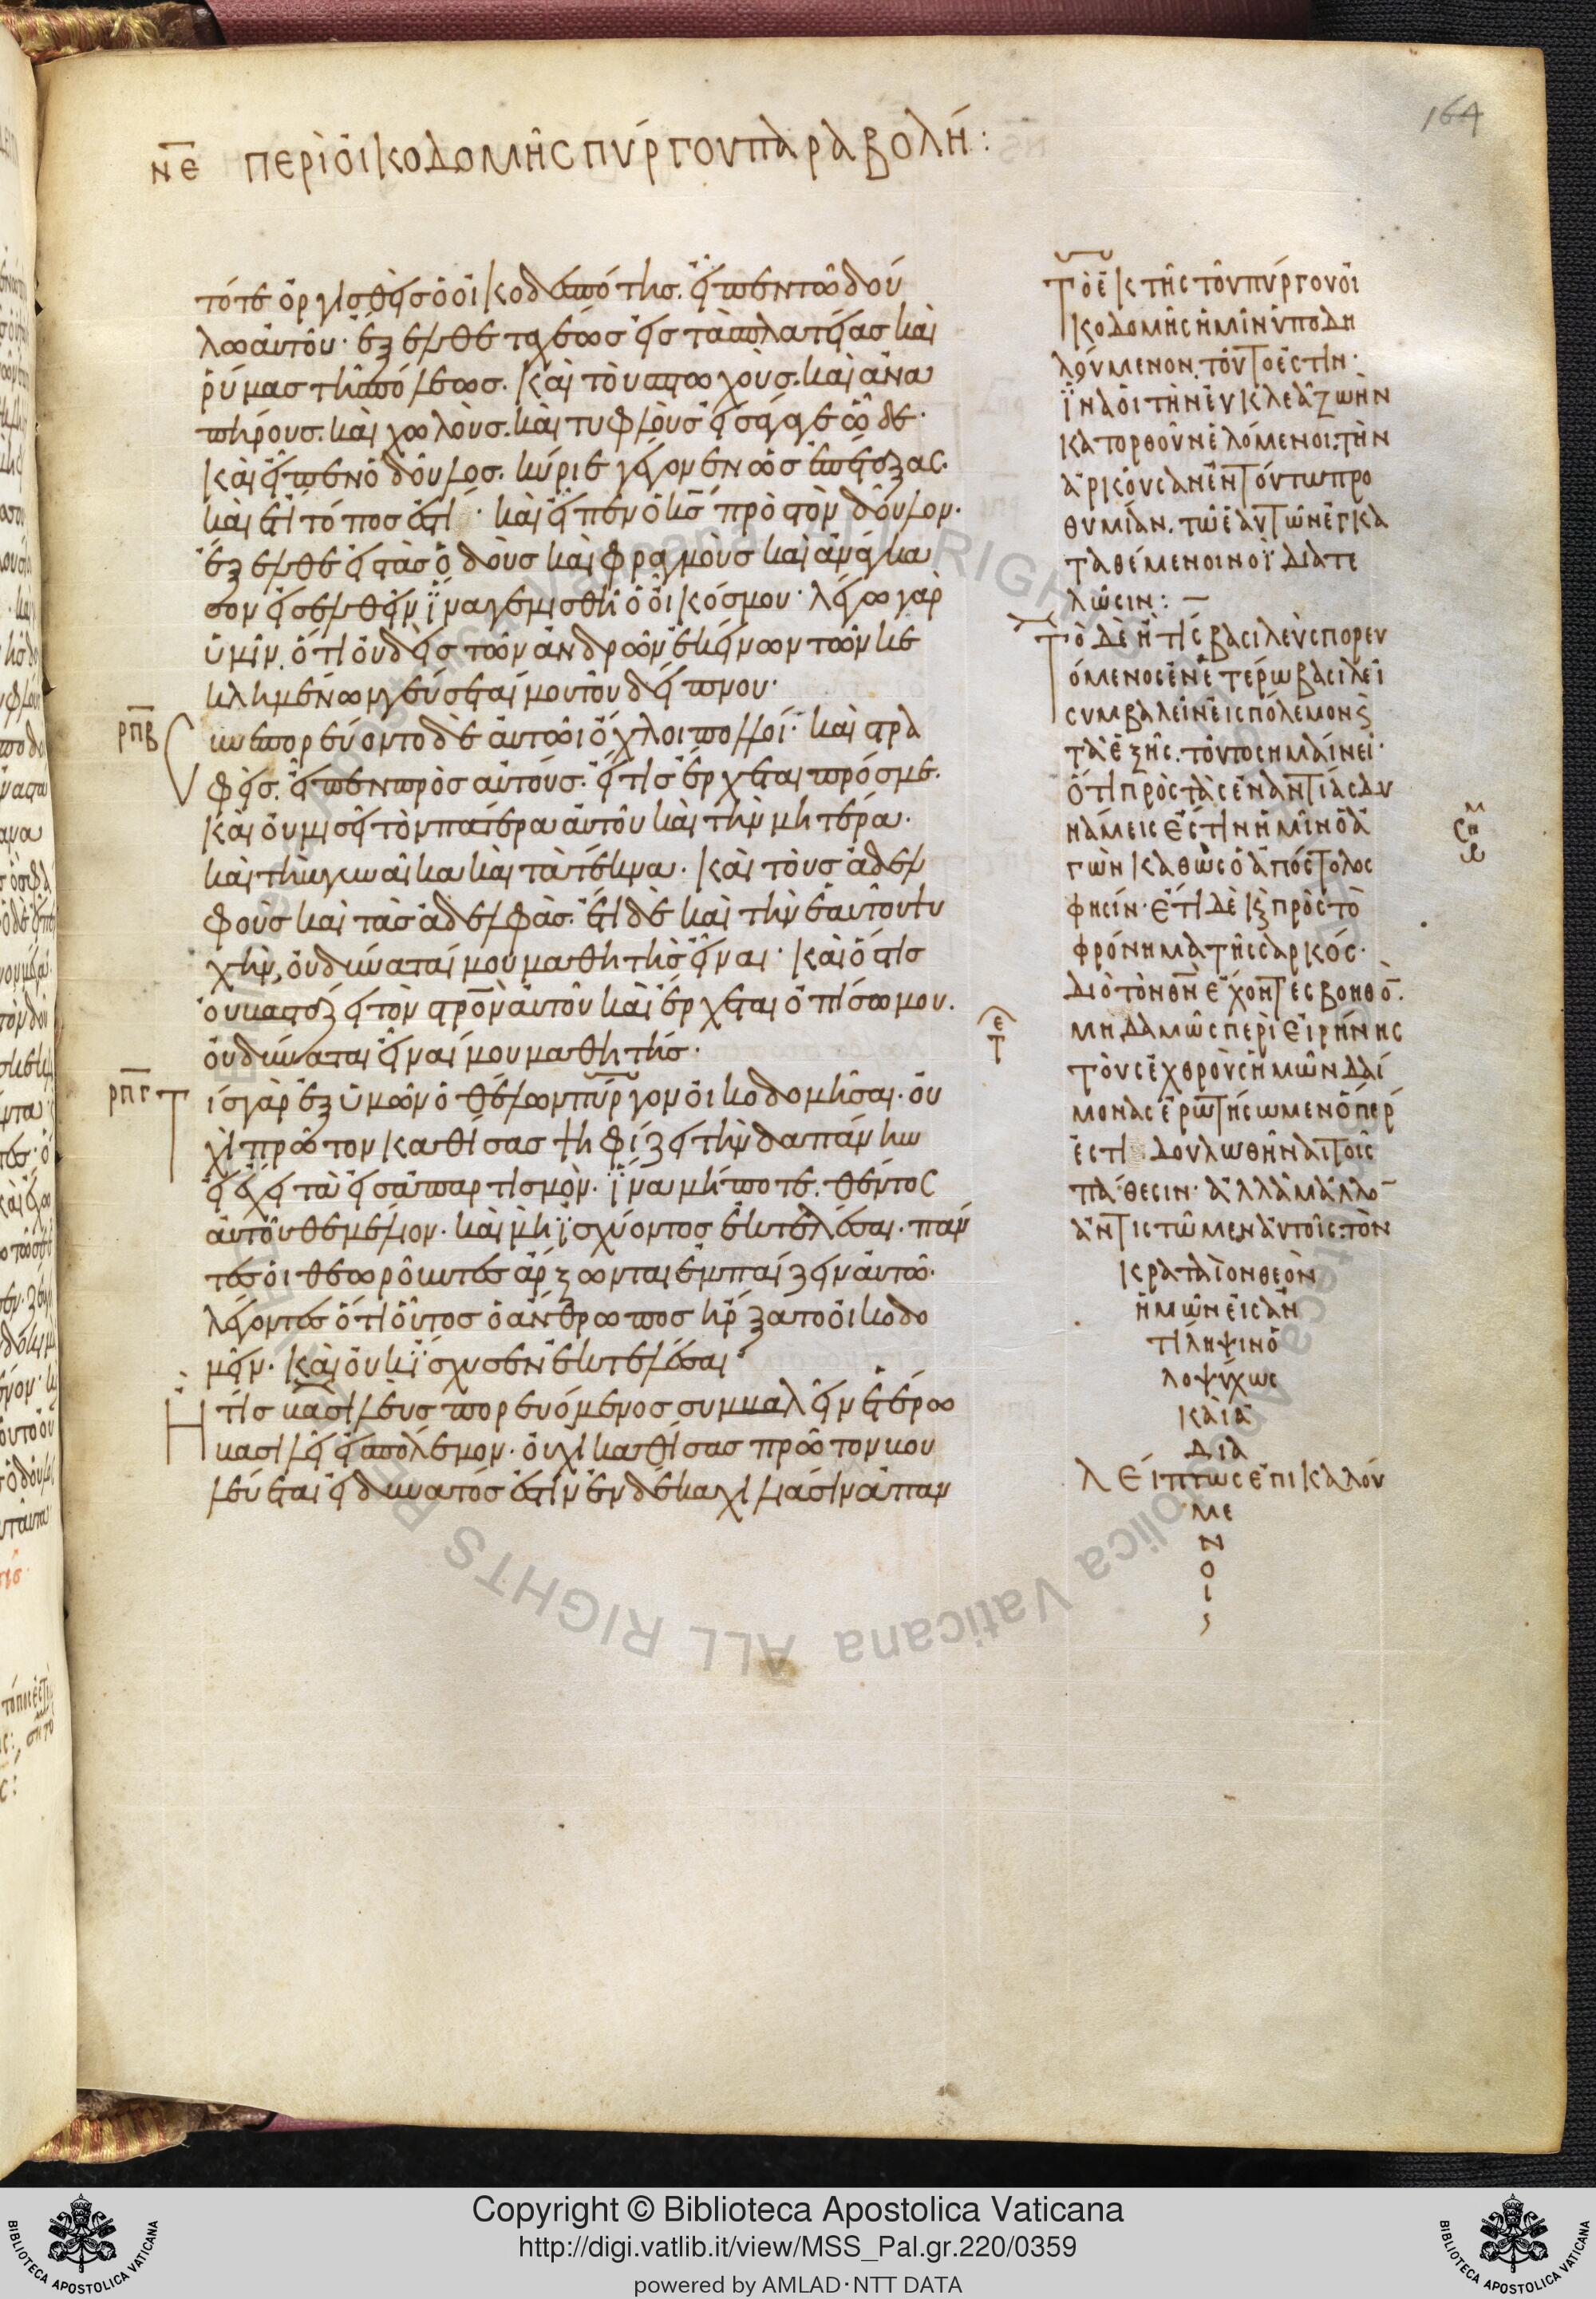 164
ν̅ε̅ περὶ οἰκοδομῆς πύργου παραβολή:
τότε ὀργισθεὶς ὁ οἰκοδεσπότης. εἶπεν τῶ δού
λω αὐτοῦ· ἔξελθε ταχέως εἰς τὰς πλατείας καὶ
ῥύμας τῆς πόλεως. καὶ τοὺς πτωχοὺς. καὶ ἀνα
πήρους. καὶ χωλοὺς. καὶ τυφλοὺς εἰσάγαγε ὧδε·
καὶ εἶπεν ὁ δοῦλος. κύριε γέγονεν ὡς ἐπέταξας.
καὶ ἔτι τόπος ἐστί· καὶ εἶπεν ὁ κ̅ς̅ πρὸς τὸν δοῦλον.
ἔξελθε εἰς τὰς ὁδοὺς καὶ φραγμοὺς καὶ ἀνάγκα
σον εἰσελθεῖν ἵνα γεμισθῆ ὁ οἶκός μου· λέγω γὰρ
ὑμῖν. ὅτι οὐδεὶς τῶν ἀνδρῶν ἐκείνων τῶν κε
κλημένων γεύσεταί μου τοῦ δείπνου·
ρ̅π̅β̅ Συνεπορεύοντο δὲ αὐτῶ ὄχλοι πολλοί· καὶ στρα
φεὶς. εἶπεν πρὸς αὐτούς. εἴ τις ἔρχεται πρός με.
καὶ οὐ μισεῖ τὸν πατέρα αὐτοῦ καὶ τὴν μητέρα.
καὶ τὴν γυναῖκα καὶ τὰ τέκνα. καὶ τοὺς ἀδελ
φοὺς καὶ τὰς ἀδελφὰς. ἔτι δὲ καὶ τὴν ἑαυτοῦ ψυ
χὴν, οὐ δύναταί μου μαθητὴς εἶναι· καὶ ὅστις
οὐ βαστάζει τὸν στρο̅ν αὐτοῦ καὶ ἔρχεται ὀπίσω μου.
οὐ δύναται εἶναί μου μαθητής·
ρ̅π̅γ̅ Τίς γὰρ ἐξ ὑμῶν ὁ θέλων πύργον οἰκοδομῆσαι. οὐ
χὶ πρῶτον καθίσας ψηφίζει τὴν δαπάνην
εἰ ἔχει τὰ εἰς ἀπαρτισμὸν· ἵνα μήποτε. θέντος
αὐτοῦ θεμέλιον. καὶ μὴ ἰσχύοντος ἐκτελέσαι. πάν
τες οἱ θεωροῦντες ἄρξωνται ἐμπαίζειν αὐτῶ·
λέγοντες ὅτι οὗτος ὁ ἄνθρωπος ἤρξατο οἰκοδο
μεῖν. καὶ οὐκ ἴσχυσεν ἐκτελέσαι·
Ἢ τίς βασιλεὺς πορευόμενος συμβαλεῖν ἑτέρω
βασιλεῖ εἰς πόλεμον· οὐχὶ καθίσας πρῶτον βου
λεύεται εἰ δυνατός ἐστὶν ἐν δέκα χιλιάσιν ἀπαν
Τὸ ἐκ τῆς τοῦ πύργου οἰ
κοδομῆς ἡμῖν ὑποδη
λούμενον. τοῦτο ἐστὶν·
ἵνα οἱ τὴν εὐκλεᾶ ζωὴν
κατορθοῦν ἑλόμενοι. τὴν
ἀρκοῦσαν ἐν τούτω προ
θυμίαν. τῶ ἑαυτῶν ἐγκα
ταθέμενοι νοῒ διατε
λῶσιν: –
Τὸ δὲ ἢ τίς βασιλεὺς πορευ
όμενος ἐν ἑτέρω βασιλεῖ
συμβαλεῖν εἰς πόλεμον ϗ
τὰ ἑξῆς. τοῦτο σημαίνει·
ὅτι πρὸς τὰς ἐναντίας δυ
νάμεις ἐστὶν ἡμῖν ὁ ἀ
γὼν καθὼς ὁ ἀπόστολος
φησίν· ἔτι δὲ ϗ πρὸς τὸ
φρόνημα τῆς σαρκός·
διὸ τὸν θ̅ν̅ ἔχοντες βοηθό̅.
μηδαμῶς περὶ εἰρήνης
τοὺς ἐχθροὺς ἡμῶν δαί
μονας ἐρωτήσωμεν ὅπερ
ἐστὶ δουλωθῆναι τοῖς
πάθεσιν· ἀλλὰ μᾶλλο̅
ἀντιστῶμεν αὐτοῖς. τὸν
κραταῖον θεὸν
ἡμῶν εἰς ἀν
τίληψιν ὁ
λοψύχως
καὶ ἀ
δια
λείπτως ἐπικαλού
με
ν
ο
ι
ς